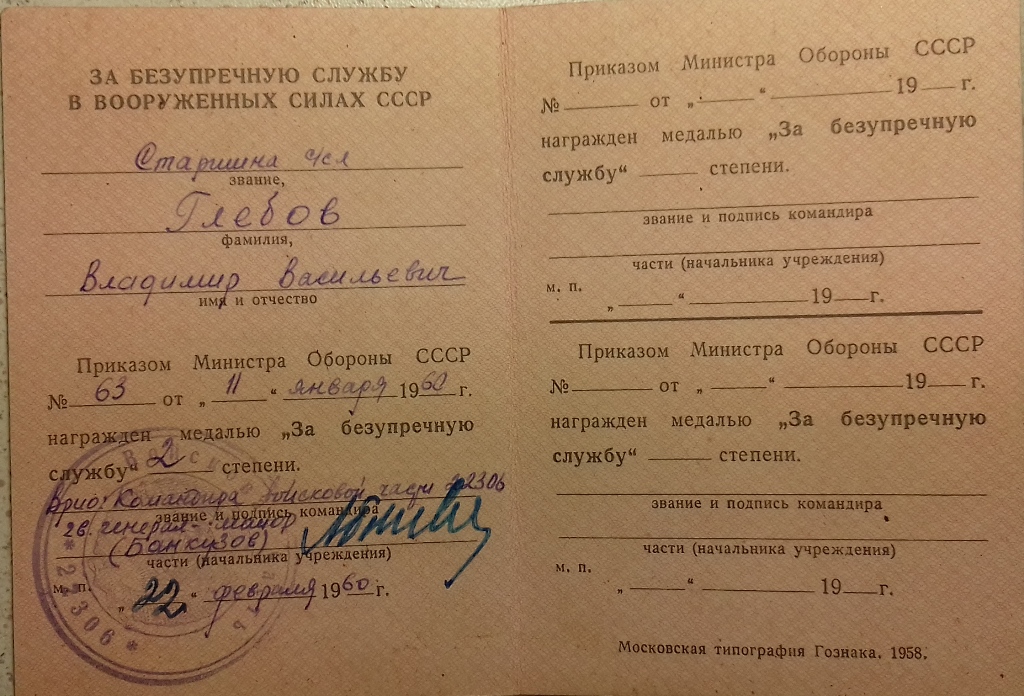 ЗА БЕЗУПРЕЧНУЮ СЛУЖБУ
В ВООРУЖЕННЫХ СИЛАХ СССР
Старшина с/сл
звание,
Глебов
фамилия,
Владимир Васильевич
имя и отчество
Приказом Министра Обороны СССР
№ 63 от „ 11 “ января 1960 г.
награжден медалью „За безупречную
службу“ 2 степени.
Врио. Командира войсковой части 22306
звание и подпись командира
гв. генерал-майор
(Банкузов)
части (начальника учреждения)
м. п.
„ 22 “ февраля 1960 г.
* 22306 *
Приказом Министра Обороны СССР
№ от „ “ 19 г.
награжден медалью „За безупречную
службу“ степени.
звание и подпись командира
части (начальника учреждения)
м. п.
„ “ 19 г.
Приказом Министра Обороны СССР
№ от „ “ 19 г.
награжден медалью „За безупречную
службу“ степени.
звание и подпись командира
части (начальника учреждения)
м. п.
„ “ 19 г.
Московская типография Гознака. 1958.